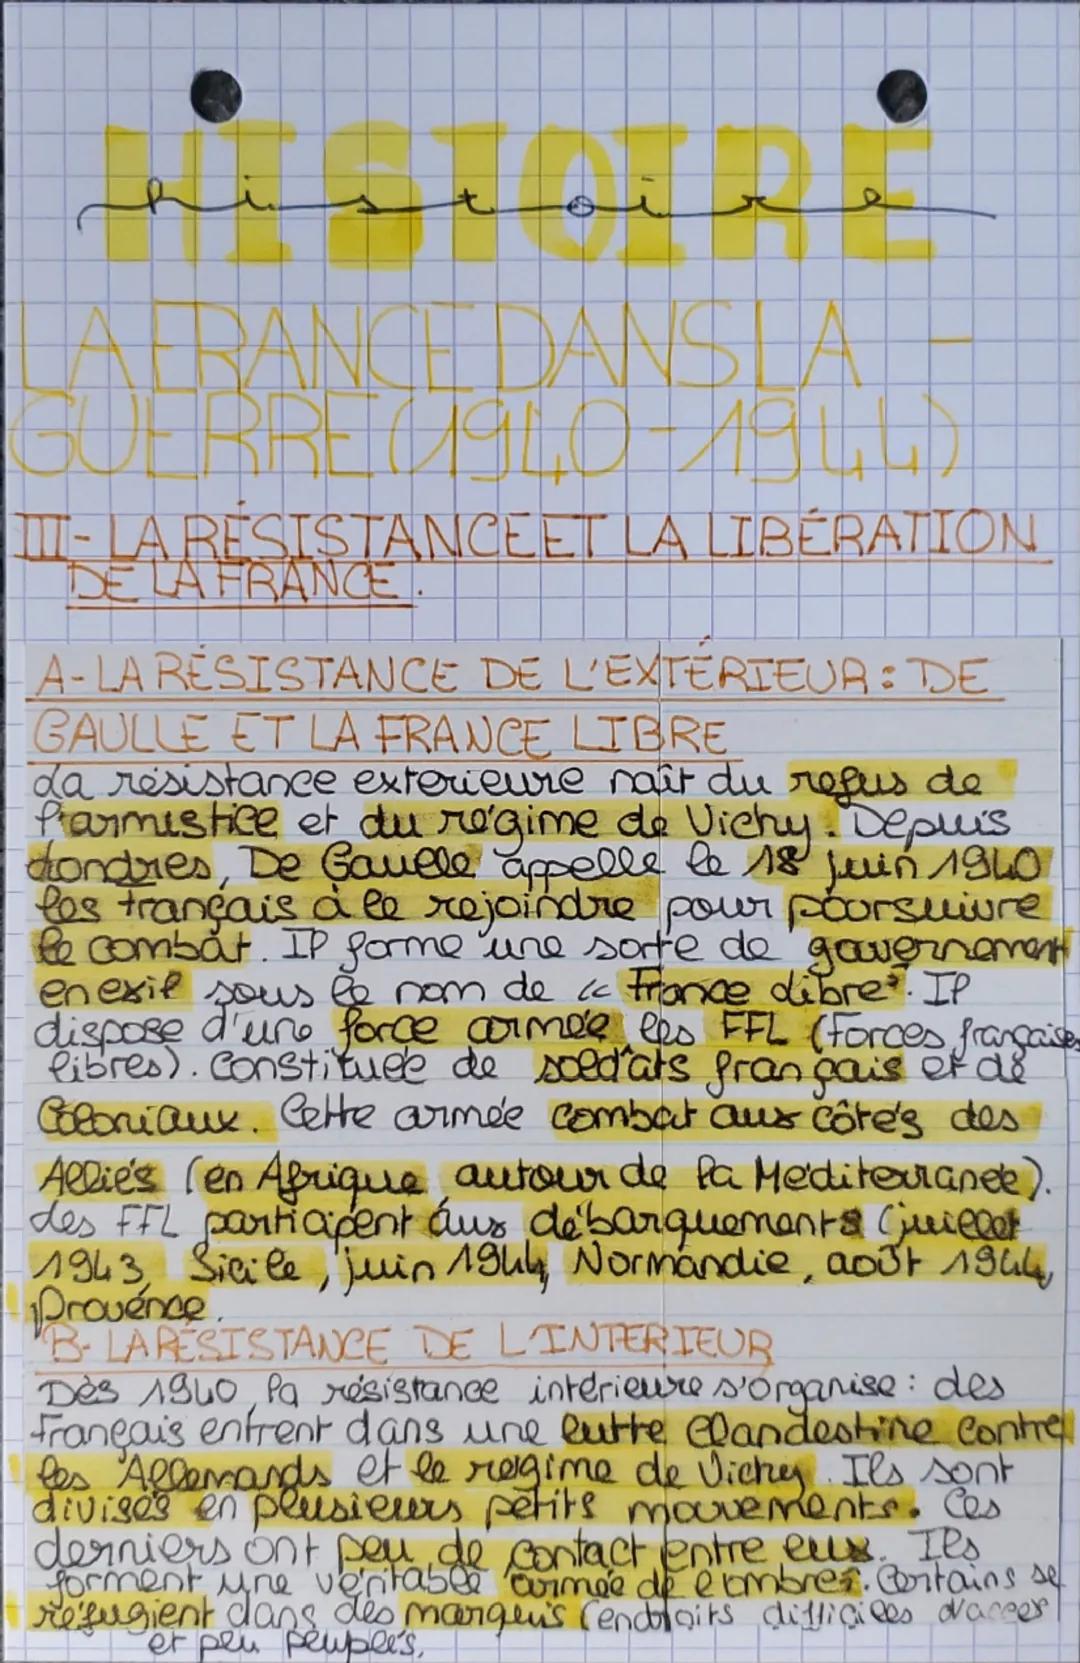 HISTOIRE
histoire
LA FRANCE DANS LA -
GUERRE (1940-1944)
III- LA RÉSISTANCE ET LA LIBÉRATION
DE LA FRANCE.
A- LA RÉSISTANCE DE L'EXTÉRIEUR : DE
GAULLE ET LA FRANCE LIBRE
La résistance exterieure naît du refus de
l'armistice et du régime de Vichy. Depuis
Londres, De Gaulle appelle le 18 juin 1940
les français à le rejoindre pour poursuivre
le combat. Il forme une sorte de gouvernement
en exil sous le nom de « France Libre". Il
dispose d'une force armée, les FFL (Forces françaises
libres). Constituée de soldats français et de
Coloniaux. Cette armée combat aux côtés des
Alliés (en Afrique, autour de la Méditerranée).
Les FFL participent aux débarquements (juillet
1943, Sicile, juin 1944, Normandie, août 1944,
Provence.
B- LA RÉSISTANCE DE L'INTERIEUR
Dès 1940, la résistance intérieure s'organise : des
Français entrent dans une lutte clandestine contre
les Allemands et le régime de Vichy. Ils sont
divisés en plusieurs petits mouvements. Ces
derniers ont peu de contact entre eux. Ils
forment une véritable "armée de l'ombre". Certains se
réfugient dans des marquis (endroits difficiles d'acces
et peu peuplés.